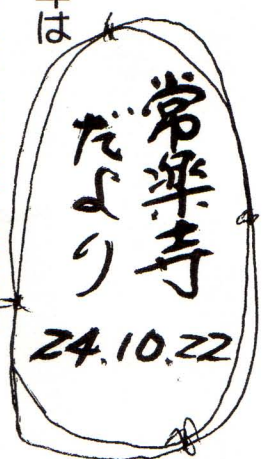 は
常楽寺
だより
24.10.22